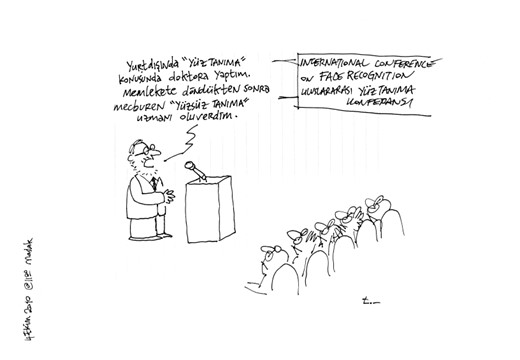 YURTDIŞINDA "YÜZ TANIMA"
KONUSUNDA DOKTORA YAPTIM.
MEMLEKETE DÖNDÜKTEN SONRA
MECBUREN "YÜZSÜZ TANIMA"
UZMANI OLUVERDİM.
INTERNATIONAL CONFERENCE
ON FACE RECOGNITION
ULUSLARARASI YÜZ TANIMA
KONFERANSI
2010